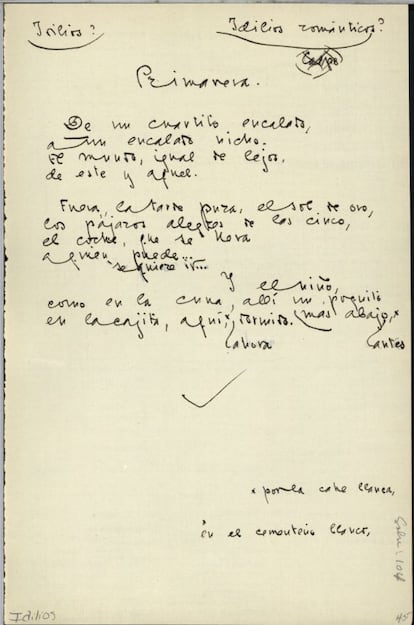 Idilios?
Idilios románticos?
Primavera.
De un cuartito encalado,
a un encalado nicho.
El mundo, igual de lejos,
de este y aquel.
Fuera, la tarde pura, el sol de oro,
los pájaros alegres de las cinco,
el coche, que se lleva
a quien puede...
se quiere ir....
Y el niño,
como en la cuna, allí un poquito
en la cajita, aquí,x dormido. más abajo,x
ahora
antes
x por la calle llanca,
en el cementerio llanco,
Idilios
45